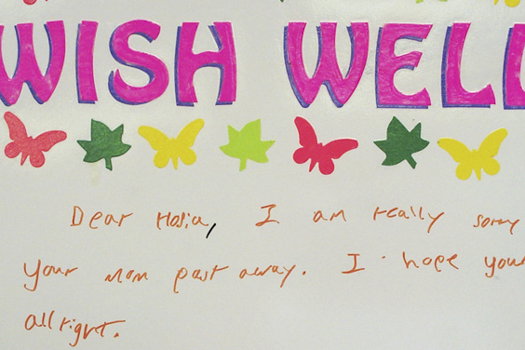 WISH WELL
Dear Hosia, I am really sorry
your mom past away. I hope your
allright.